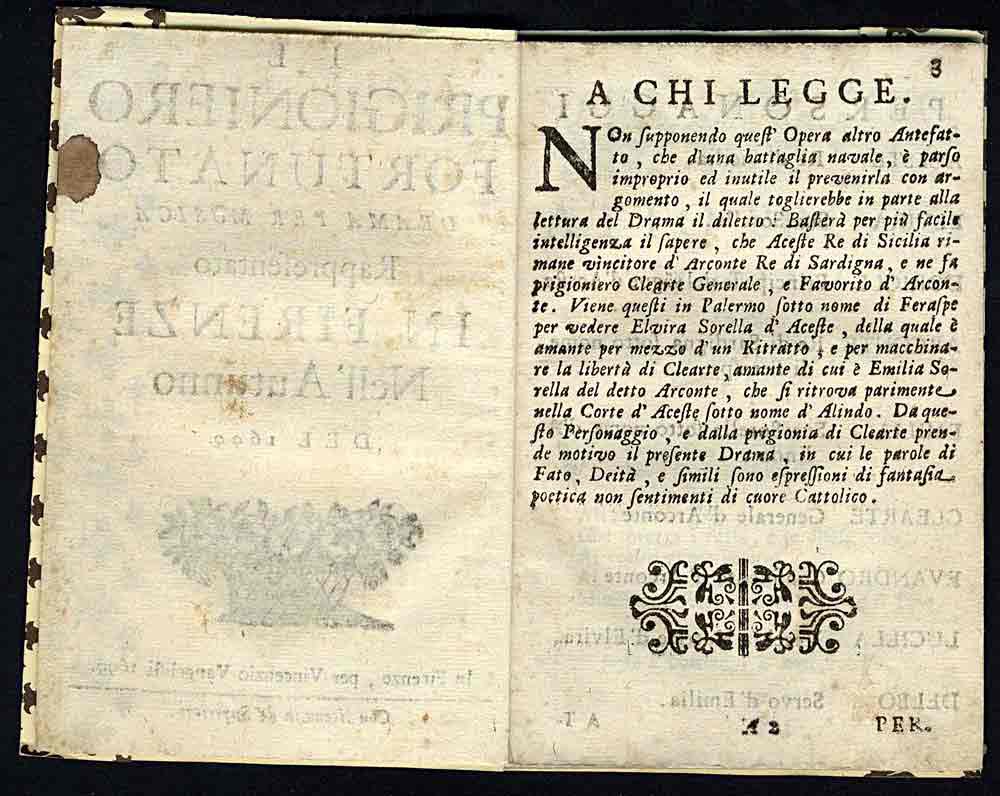 3
A CHI LEGGE.
NOn ſupponendo queſt' Opera altro Antefat-
to, che d'una battaglia navale, è parſo
improprio ed inutile il prevenirla con ar-
gomento, il quale toglierebbe in parte alla
lettura del Drama il diletto: Baſterà per più facile
intelligenza il ſapere, che Aceſte Re di Sicilia ri-
mane vincitore d'Arconte Re di Sardigna, e ne fa
prigioniero Clearte Generale, e Favorito d' Arcon-
te. Viene queſti in Palermo ſotto nome di Feraſpe
per vedere Elvira Sorella d' Aceſte, della quale è
amante per mezzo d'un Ritratto, e per macchina-
re la libertà di Clearte, amante di cui è Emilia So-
rella del detto Arconte, che ſi ritrova parimente
nella Corte d' Aceſte ſotto nome d' Alindo. Da que-
ſto Perſonaggio, e dalla prigionia di Clearte pren-
de motivo il preſente Drama, in cui le parole di
Fato, Deità, e ſimili ſono eſpreſſioni di fantaſia
poetica non ſentimenti di cuore Cattolico.
A 2 PER.
IL
PRIGIONIERO
FORTUNATO
DRAMA PER MUSICA
Rappreſentato
IN FIRENZE
Nell' Autunno
DEL 1699.
In Firenze, per Vincenzio Vangeliſti 1699.
Con licenza de' Superiori.
PERSONAGGI
CLEARTE Generale d'Arconte
EVANDRO
LUCILLA
DELBO Servo d'Emilia.